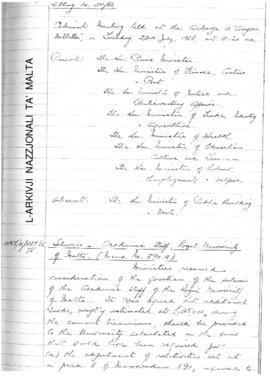 Cabinet Meeting held at the Auberge d'Aragon
Valletta, on Tuesday 23rd July, 1968 at
Present: The Hon. Prime Minister
The Hon. Minister of Finance, Customs
& Port
The Hon. Minister of Justice and
Parliamentary Affairs
The Hon. Minister of Trade, Industry
& Agriculture
The Hon. Minister of Health
The Hon. Minister of Education
Culture and Tourism
The Hon. Minister of Labour
Employment & Welfare
Absent: The Hon. Minister of Public Building
& Works
L-ARKIVJI NAZZJONALI TA' MALTA
Salaries - Academic Staff, Royal University
of Malta. (Memo. No. 890 A)
Ministers resumed
consideration of the question of the salaries
of the Academic Staff of the Royal University
of Malta. It was agreed that additional
funds, roughly estimated at during
the current biennium, should be provided
to the University calculated on the sums
that would have been required for:
(a) the adjustment of relativities set out
in para. 8 of Memorandum 890, referred to